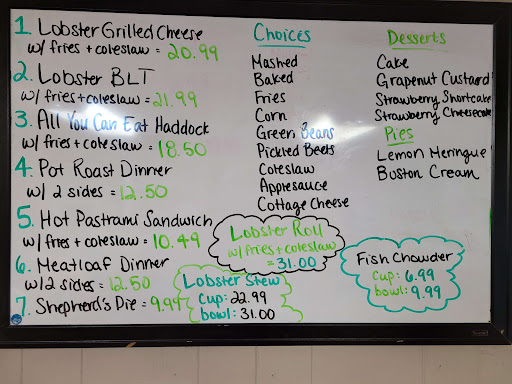 1. Lobster Grilled Cheese
w/ fries + coleslaw = 20.99
2. Lobster BLT
w/ fries + coleslaw = 21.99
3. All You Can Eat Haddock
w/ fries + coleslaw = 18.50
4. Pot Roast Dinner
w/ 2 sides = 12.50
5. Hot Pastrami Sandwich
w/ fries + coleslaw = 10.49
6. Meatloaf Dinner
w/ 2 sides = 12.50
7. Shepherd's Pie = 9.99
Choices
Mashed
Baked
Fries
Corn
Green Beans
Pickled Beets
Coleslaw
Applesauce
Cottage Cheese
Desserts
Cake
Grapenut Custard
Strawberry Shortcake
Strawberry Cheesecake
Pies
Lemon Meringue
Boston Cream
Lobster Roll
w/ fries + coleslaw
= 31.00
Lobster Stew
cup: 22.99
bowl: 31.00
Fish Chowder
cup: 6.99
bowl: 9.99